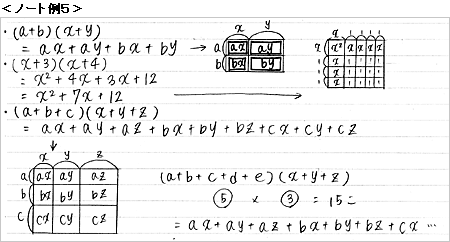 ＜ノート例５＞
・(a+b)(x+y)
= ax+ay+bx+by →
x y
a ax ay
b bx by
・(x+3)(x+4)
= x²+4x+3x+12
= x²+7x+12
x 1 1 1 1
x x² x x x x
1 x 1 1 1 1
1 x 1 1 1 1
1 x 1 1 1 1
・(a+b+c)(x+y+z)
= ax+ay+az+bx+by+bz+cx+cy+cz
↓
x y z
a ax ay az
b bx by bz
c cx cy cz
(a+b+c+d+e)(x+y+z)
⑤ × ③ = 15こ
= ax+ay+az+bx+by+bz+cx…